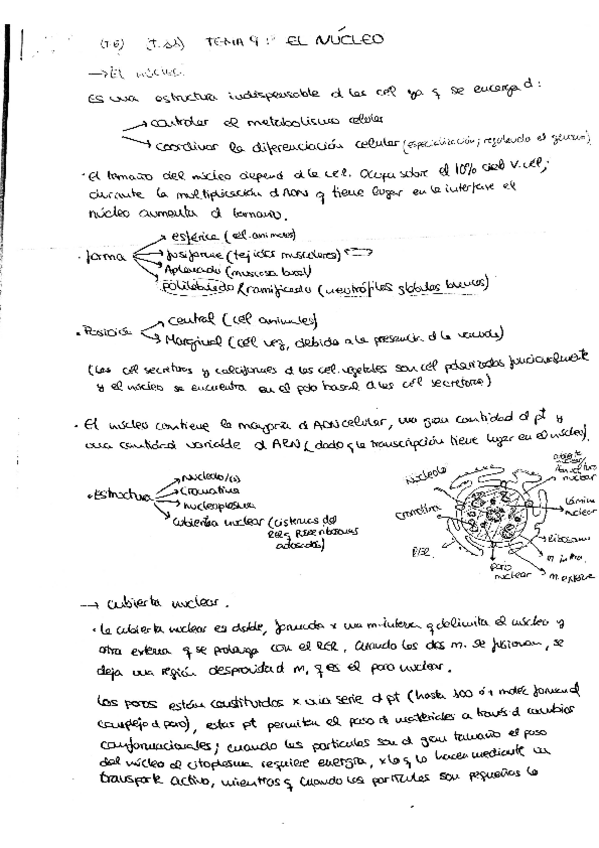 (T.6) TEMA 9: EL NÚCLEO
→ EL NÚCLEO.
Es una estructura indispensable d las cel ya q se encarga d:
→ controlar el metabolismo celular
→ coordinar la diferenciación celular (especialización; regulando el genoma)
· El tamaño del núcleo depend d la cel. Ocupa sobre el 10% del V. cel;
durante la multiplicación d ADN q tiene lugar en la interfase el
núcleo aumenta d tamaño.
· forma
→ esférica (cel. animales)
→ fusiforme (tejidos musculares)
→ Aplanado (mucosa basal)
→ polilobulado / ramificado (neutrófilos glóbulos blancos)
· Posición
Central (cel animales)
Marginal (cel veg, debido a la presencia d la vacuola)
(Las cel secretoras y caliciformes d las cel. vegetales son cel polarizadas funcionalmente
y el núcleo se encuentra en el polo basal d las cel secretoras)
· El núcleo contiene la mayoría d ADN celular, una gran cantidad d pt y
una cantidad variable d ARN (dado q la transcripción tiene lugar en el núcleo).
· Estructura
→ Nucleolo/(s)
→ Cromatina
→ nucleoplasma
→ Cubierta nuclear (cisternas del
RER y ribosomas
adosados)
Nucleolo
Cromatina
RER
poro
nuclear
nuclear
Lámina
nuclear
Ribosomas
m. interna
m. externa
→ Cubierta nuclear.
· La cubierta nuclear es doble, formada x una m. interna q delimita el núcleo y
otra externa q se prolonga con el RER. Cuando las dos m. se fusionan, se
deja una región desprovista d m, q es el poro nuclear.
Los poros están constituidos x una serie d pt (hasta 100 ó + moléc forman el
complejo d poro), estas pt permiten el paso d materiales a través d cambios
conformacionales; cuando las partículas son d gran tamaño el paso
del núcleo al citoplasma requiere energía, x lo q lo hacen mediante un
transporte activo, mientras q cuando las partículas son pequeñas lo